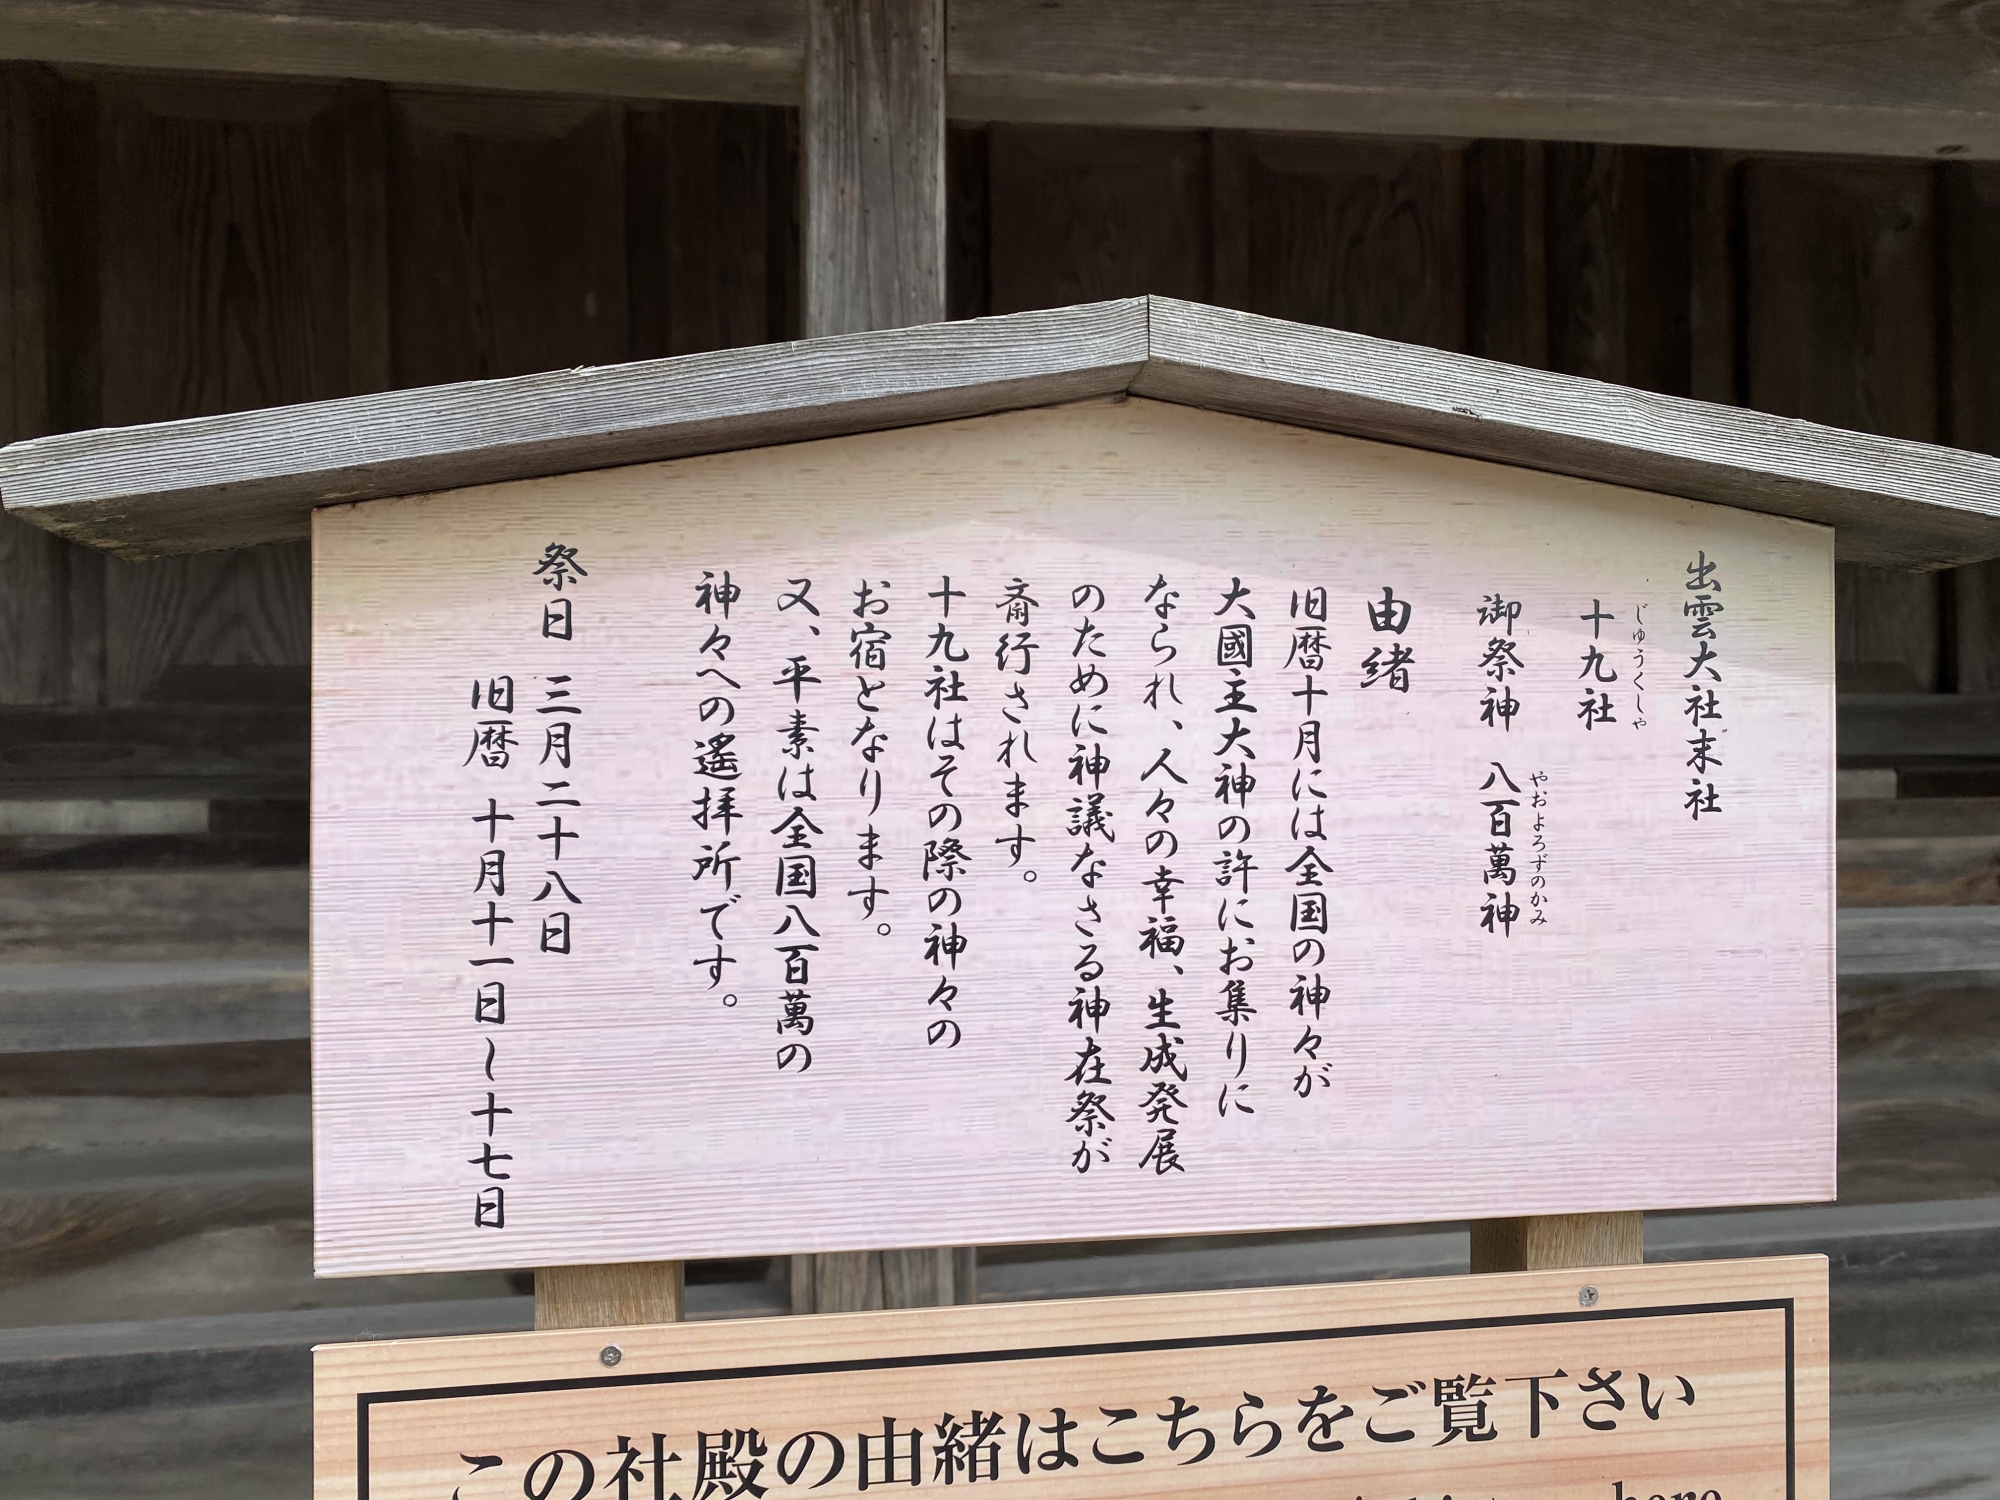 出雲大社末社
じゅうくしゃ
十九社
やおよろずのかみ
御祭神 八百萬神
由緒
旧暦十月には全国の神々が
大國主大神の許にお集りに
なられ、人々の幸福、生成発展
のために神議なさる神在祭が
斎行されます。
十九社はその際の神々の
お宿となります。
又、平素は全国八百萬の
神々への遙拝所です。
祭日 三月二十八日
旧暦 十月十一日~十七日
この社殿の由緒はこちらをご覧下さい
here